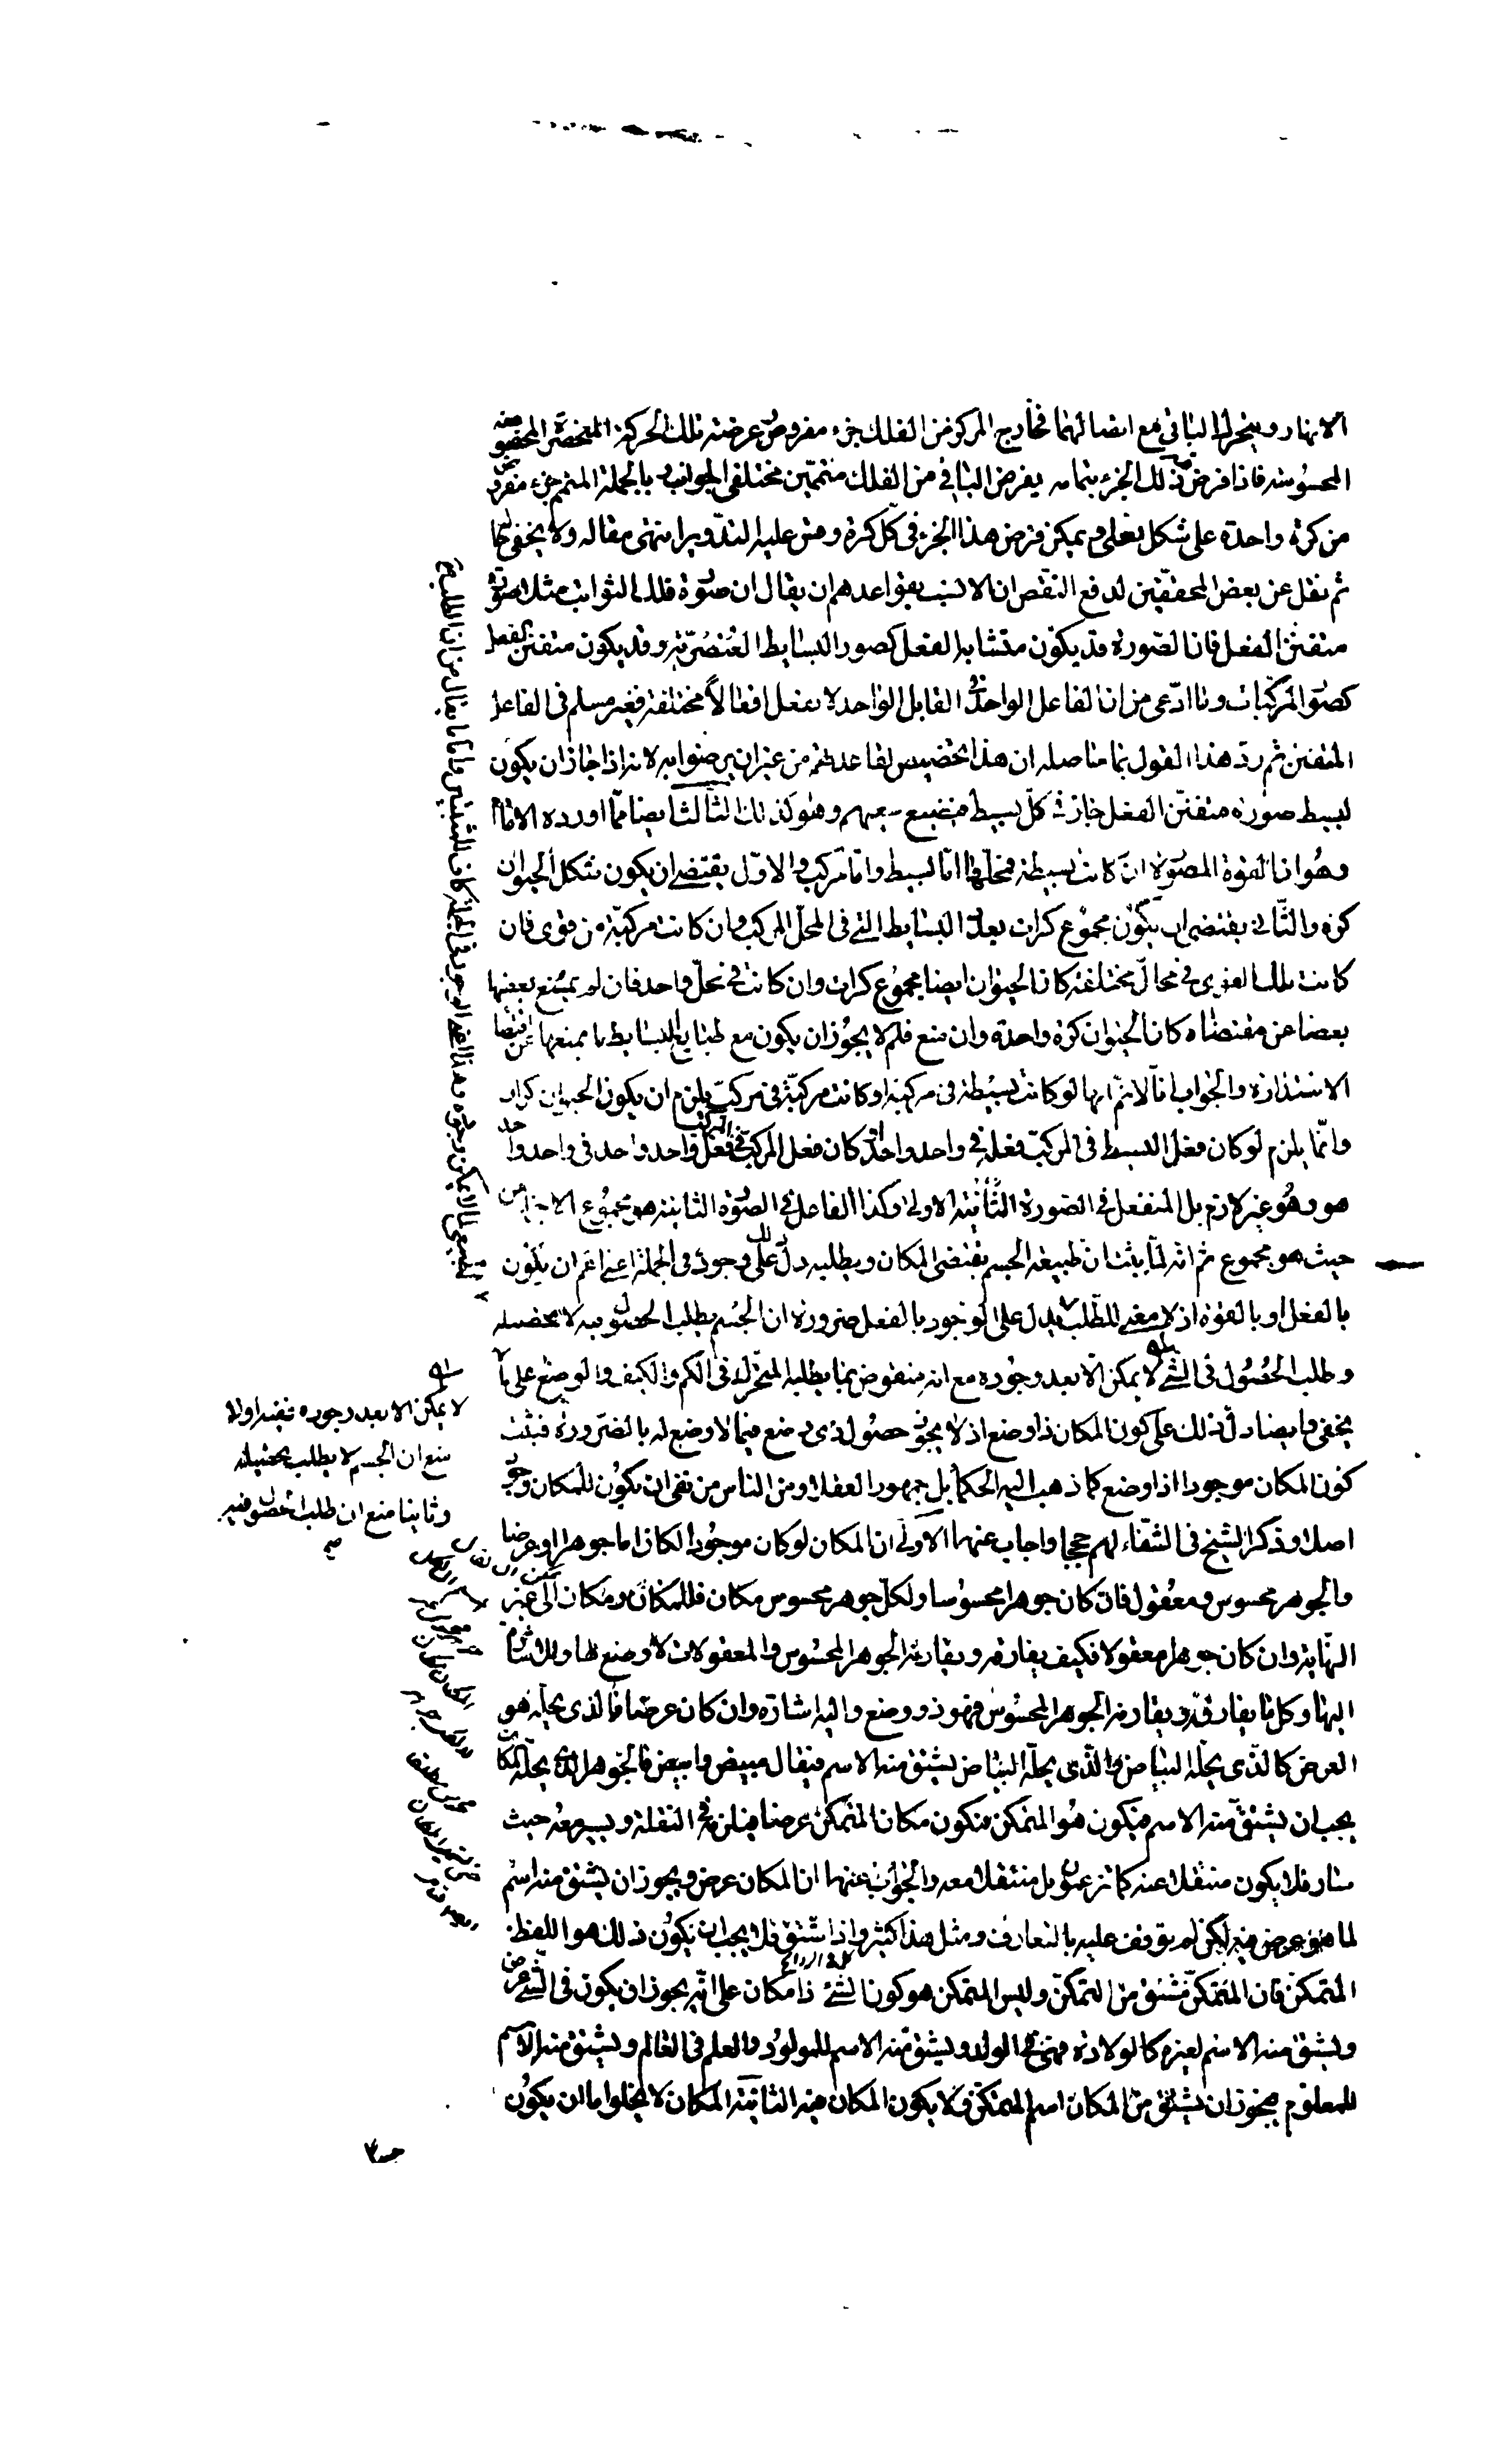 الانهار ويتحرك الباقي مع اتصالهما فخارج المركز من الفلك جزء مفروض عرضته تلك الحركة المختصة
المحسوسة فاذا فرض ذلك الجزء بتمامه يفرض الباقي من الفلك متممين مختلفي الجوانب وبالجملة المتمم جزء مفرد
من كرة واحدة على شكل نعلي ويمكن فرض هذا الجزء في كل كرة وقس عليه التدوير انتهى مقاله ولا يخفى
ثم نقل عن بعض المحققين لدفع النقض ان الانسب بقواعدهم ان يقال ان صورة فلك الثوابت مثلا صورة
متفنن الفعل فان الصورة قد يكون متشابه الفعل كصور البسايط العنصرية وقد يكون متفنن الفعل
كصور المركبات وما ادعي من ان الفاعل الواحد في القابل الواحد لا يفعل افعالا مختلفة فغير مسلم في الفاعل
المتفنن ثم رد هذا القول بما حاصله ان هذا تخصيص لقاعدتهم من غير ان يرضوا به لانه اذا جاز ان يكون
لبسيط صورة متفنن الفعل جاز في كل بسيط فيضيع سعيهم وهو كذلك الثالث ايضا مما اورده الامام
وهو ان القوة المصورة ان كانت بسيطة فمحلها اما بسيط واما مركب والاول يقتضي ان يكون شكل الحيوان
كرة والثاني يقتضي ان يكون مجموع كرات بعدد البسايط التي في المحل المركب وان كانت مركبة من قوى فان
كانت تلك القوى في محال مختلفة كان الحيوان ايضا مجموع كرات وان كانت في محل واحد فان لم يمنع بعضها
بعضا عن مقتضاه كان الحيوان كرة واحدة وان منع فلم لا يجوز ان يكون مع طبايع البسايط ما يمنعها عن اقتضا
الاستدارة والجواب انا لا نم انها لو كانت بسيطة في مركبة او كانت مركبة في مركب يلزم ان يكون الحيوان كرات
وانما يلزم لو كان فعل البسيط في المركب فعله في واحد واحد او كان فعل المركب في المركب فعل واحد واحد في واحد واحد
هو وهو غير لازم بل المنفعل في الصورة الثانية الاولى وكذا الفاعل في الصورة الثانية هو مجموع الاجزاء من
حيث هو مجموع ثم انه لما يثبت ان طبيعة الجسم يقتضي المكان ويطلبه دل ذلك على وجوده في الجملة اعني اعم ان يكون
بالفعل او بالقوة اذ لا معنى للطلب بل دل على الوجود بالفعل ضرورة ان الجسم يطلب الحصول فيه لا تحصيله
وطلب الحصول في الشيء لا يمكن الا بعد وجوده مع انه منقوض بما يطلبه المتحرك في الكم والكيف والوضع على ما لا
يخفى وايضا دل ذلك على كون المكان ذا وضع اذ لا يجوز حصول ذي وضع فيما لا وضع له بالضرورة فثبت
كون المكان موجودا اذا وضع كما ذهب اليه الحكما بل جمهور العقلاء ومن الناس من نفى ان يكون للمكان وجود
اصلا وذكر الشيخ في الشفاء لهم حججا واجاب عنها الاولى ان المكان لو كان موجودا لكان اما جوهرا او عرضا
والجوهر محسوس ومعقول فان كان جوهرا محسوسا ولكل جوهر محسوس مكان فللمكان مكان الى غير
النهاية وان كان جوهرا معقولا فكيف يفارقه ويقارنه الجوهر المحسوس والمعقولات لا وضع لها ولا اشارة
اليها وكل ما يفارقه ويقارنه الجوهر المحسوس فهو ذو وضع واليه اشارة وان كان عرضا فالذي يحله هو
العرض كالذي يحله البياض والذي يحله البياض يشتق منه الاسم فيقال مبيض وابيض فالجوهر الذي يحله المكان
يجب ان يشتق منه الاسم فيكون هو المتمكن فيكون مكان المتمكن عرضا فيلزمه في النقلة ويسير معه حيث
سار فلا يكون منتقلا عنه كما تزعمون بل منتقلا معه والجواب عنها ان المكان عرض ويجوز ان يشتق منه اسم
لما هو عرض فيه لكن لم يوقف عليه بالتعارف ومثل هذا كثير واذا اشتق فلا يجب ان يكون ذلك هو اللفظ
المتمكن فان المتمكن مشتق من التمكن وليس التمكن هو كون الشيء ذا مكان على انه يجوز ان يكون في الشيء عرض
ويشتق منه الاسم لغيره كالولادة فهي في الوالد ويشتق منه الاسم للمولود والعلم في العالم ويشتق منه الاسم
للمعلوم فيجوز ان يشتق من المكان اسم المتمكن ولا يكون المكان فيه الثانية المكان لا يخلوا ما ان يكون
لا يمكن الا بعد وجوده ففيه اولا
منع ان الجسم لا يطلب تحصيله
وثانيا منع ان طلب الحصول فيه